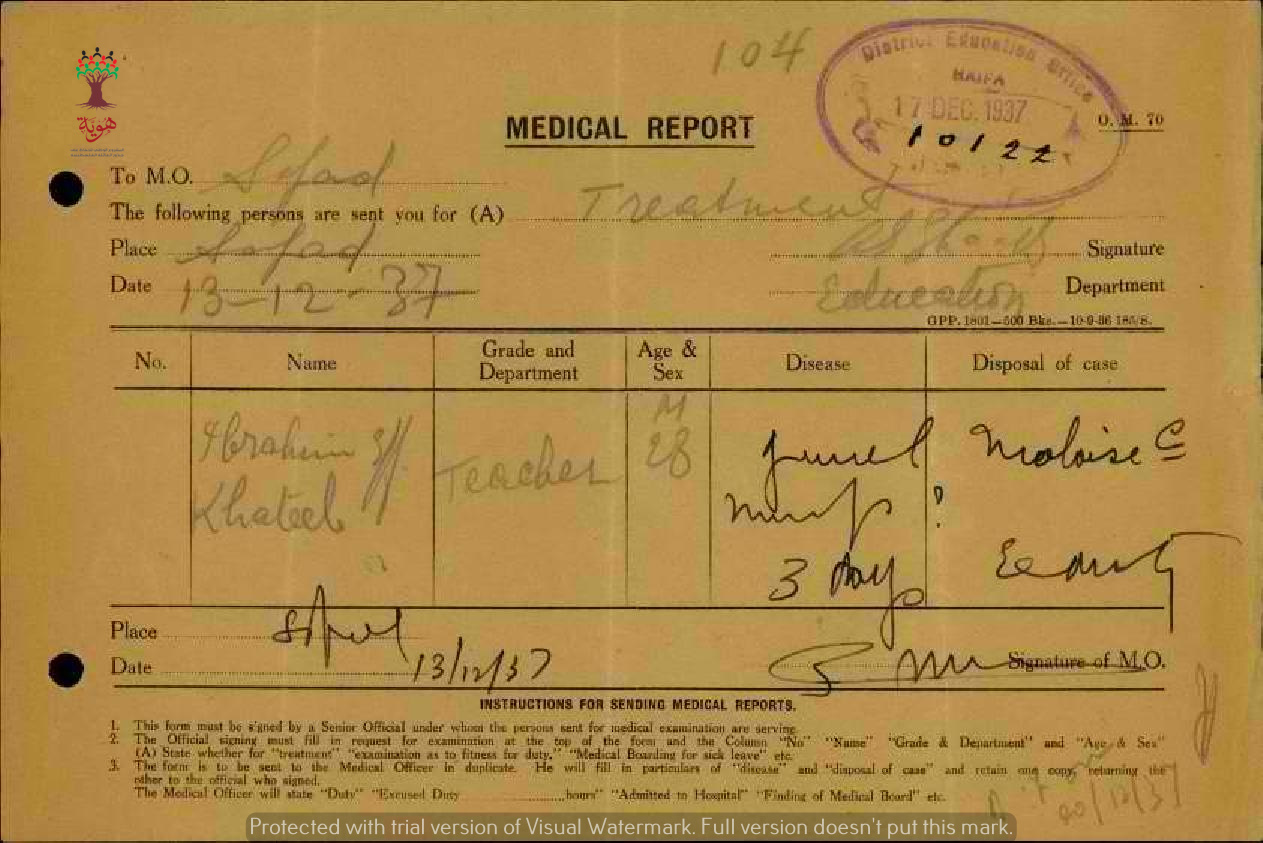 104
District Education Office
HAIFA
17 DEC. 1937
10122
هَوِيّة
MEDICAL REPORT
O. M. 70
To M.O. Safad
The following persons are sent you for (A) Treatment
Place Safad
Signature
Date 13-12-37
Education Department
GPP. 1801—500 Bks.—10-9-36 185/S.
No. Name Grade and Department Age & Sex Disease Disposal of case
Ibrahim Eff. Khateeb Teacher M 28
Malaise c
mumps ?
3 days
Place Safad
Date 13/12/37
Signature of M.O.
INSTRUCTIONS FOR SENDING MEDICAL REPORTS.
1. This form must be signed by a Senior Official under whom the persons sent for medical examination are serving.
2. The Official signing must fill in request for examination at the top of the form and the Column "No" "Name" "Grade & Department" and "Age & Sex"
(A) State whether for "treatment" "examination as to fitness for duty," "Medical Boarding for sick leave" etc.
3. The form is to be sent to the Medical Officer in duplicate. He will fill in particulars of "disease" and "disposal of case" and retain one copy, returning the
other to the official who signed.
The Medical Officer will state "Duty" "Excused Duty ............hours" "Admitted to Hospital" "Finding of Medical Board" etc.
20/12/37
Protected with trial version of Visual Watermark. Full version doesn't put this mark.